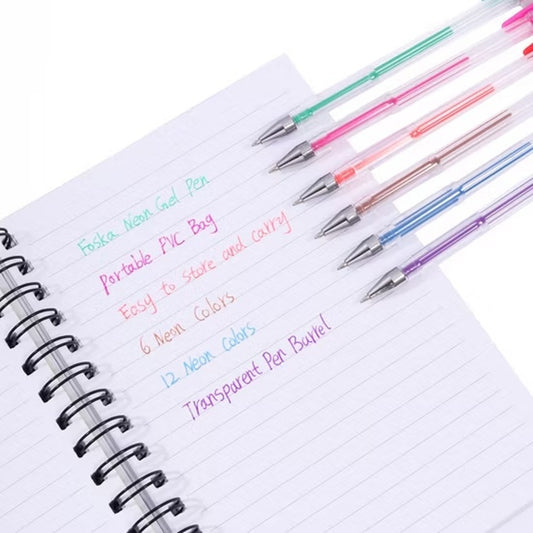 Foska Neon Gel Pen
Portable PVC Bag
Easy to store and carry
6 Neon Colors
12 Neon Colors
Transparent Pen Barrel